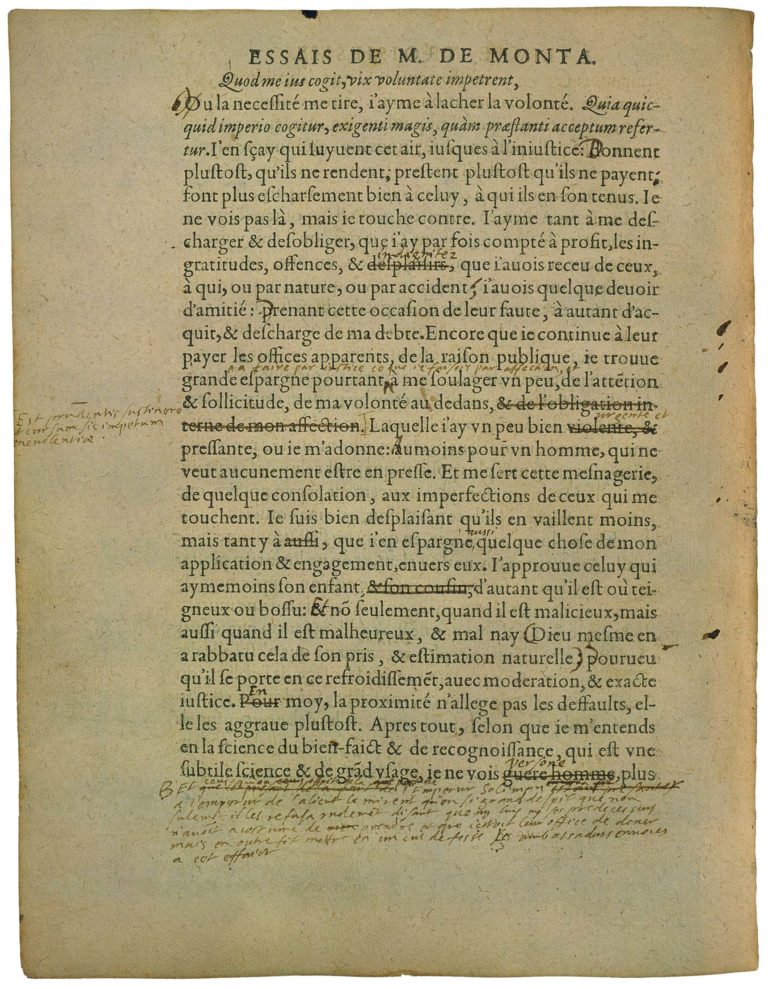 ESSAIS DE M. DE MONTA.
Quod me ius cogit, vix voluntate impetrent,
Ou la necessité me tire, i'ayme à lacher la volonté. Quia quic-
quid imperio cogitur, exigenti magis, quàm præstanti acceptum refer-
tur. I'en sçay qui suyuent cet air, iusques à l'iniustice: Donnent
plustost, qu'ils ne rendent; prestent plustost qu'ils ne payent:
font plus escharsement bien à celuy, à qui ils en son tenus. Ie
ne vois pas là, mais ie touche contre. I'ayme tant à me des-
charger & desobliger, que i'ay par fois compté à profit, les in-
indignitez
gratitudes, offences, & desplaisirs, que i'auois receu de ceux,
à qui, ou par nature, ou par accident, i'auois quelque deuoir
d'amitié: Prenant cette occasion de leur faute, à autant d'ac-
quit, & descharge de ma debte. Encore que ie continue à leur
payer les offices apparents, de la raison publique, ie trouue
a faire par iustice ce que ie faisois par affection, et
grande espargne pourtant, à me soulager vn peu, de l'attẽtion
& sollicitude, de ma volonté au dedans, & de l'obligation in-
Est prudentis sustinere
ut cursum, sic impetum
beneuolentiæ
urgente et
terne de mon affection. Laquelle i'ay vn peu bien violente, &
pressante, ou ie m'adonne: Aumoins pour vn homme, qui ne
veut aucunement estre en presse. Et me sert cette mesnagerie,
de quelque consolation, aux imperfections de ceux qui me
touchent. Ie suis bien desplaisant qu'ils en vaillent moins,
aussi
mais tant y à aussi, que i'en espargne, quelque chose de mon
application & engagement, enuers eux. I'approuue celuy qui
ayme moins son enfant, & son cousin, d'autant qu'il est où tei-
gneux ou bossu: Et nõ seulement, quand il est malicieux, mais
aussi quand il est malheureux, & mal nay (Dieu mesme en
a rabbatu cela de son pris, & estimation naturelle) pourueu
qu'il se porte en ce refroidissemẽt, auec moderation, & exacte
En
iustice. Pour moy, la proximité n'allege pas les deffaults, el-
le les aggraue plustost. Apres tout, selon que ie m'entends
en la science du bien-faict & de recognoissance, qui est vne
persone
subtile science & de grãd vsage, ie ne vois guere homme, plus
B Et Emperur Soliman
a l'emperur de Calicut le mirent qu'on si grand despit que non
sulemẽt il les refusa rudement disant que ny luy ny ses predecessurs
n'auoit a costume de prendre & que c'estoit leur office de doner
mais en outre fit metre en un cul de fosse les ambassadurs enuoies
a cet effaict